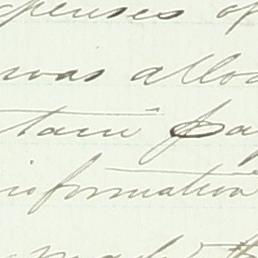 expenses of
was allo
tain pa
information